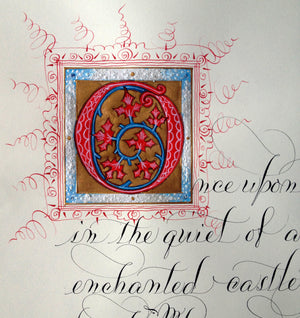 Once upon
in the quiet of a
enchanted castle